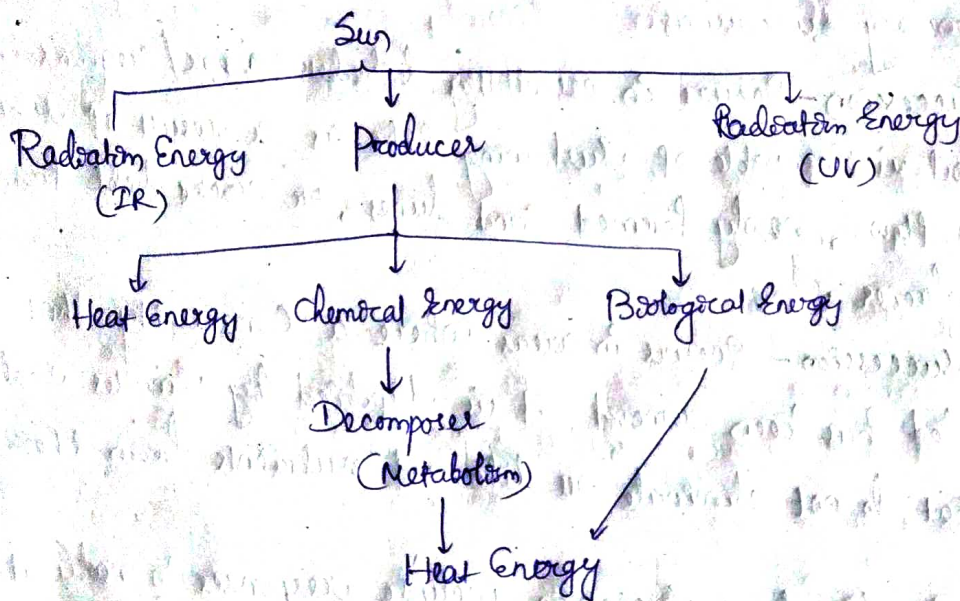 Sun
Radiation Energy
(IR)
Producer
Radiation Energy
(UV)
Heat Energy
Chemical Energy
Biological Energy
Decomposer
(Metabolism)
Heat Energy